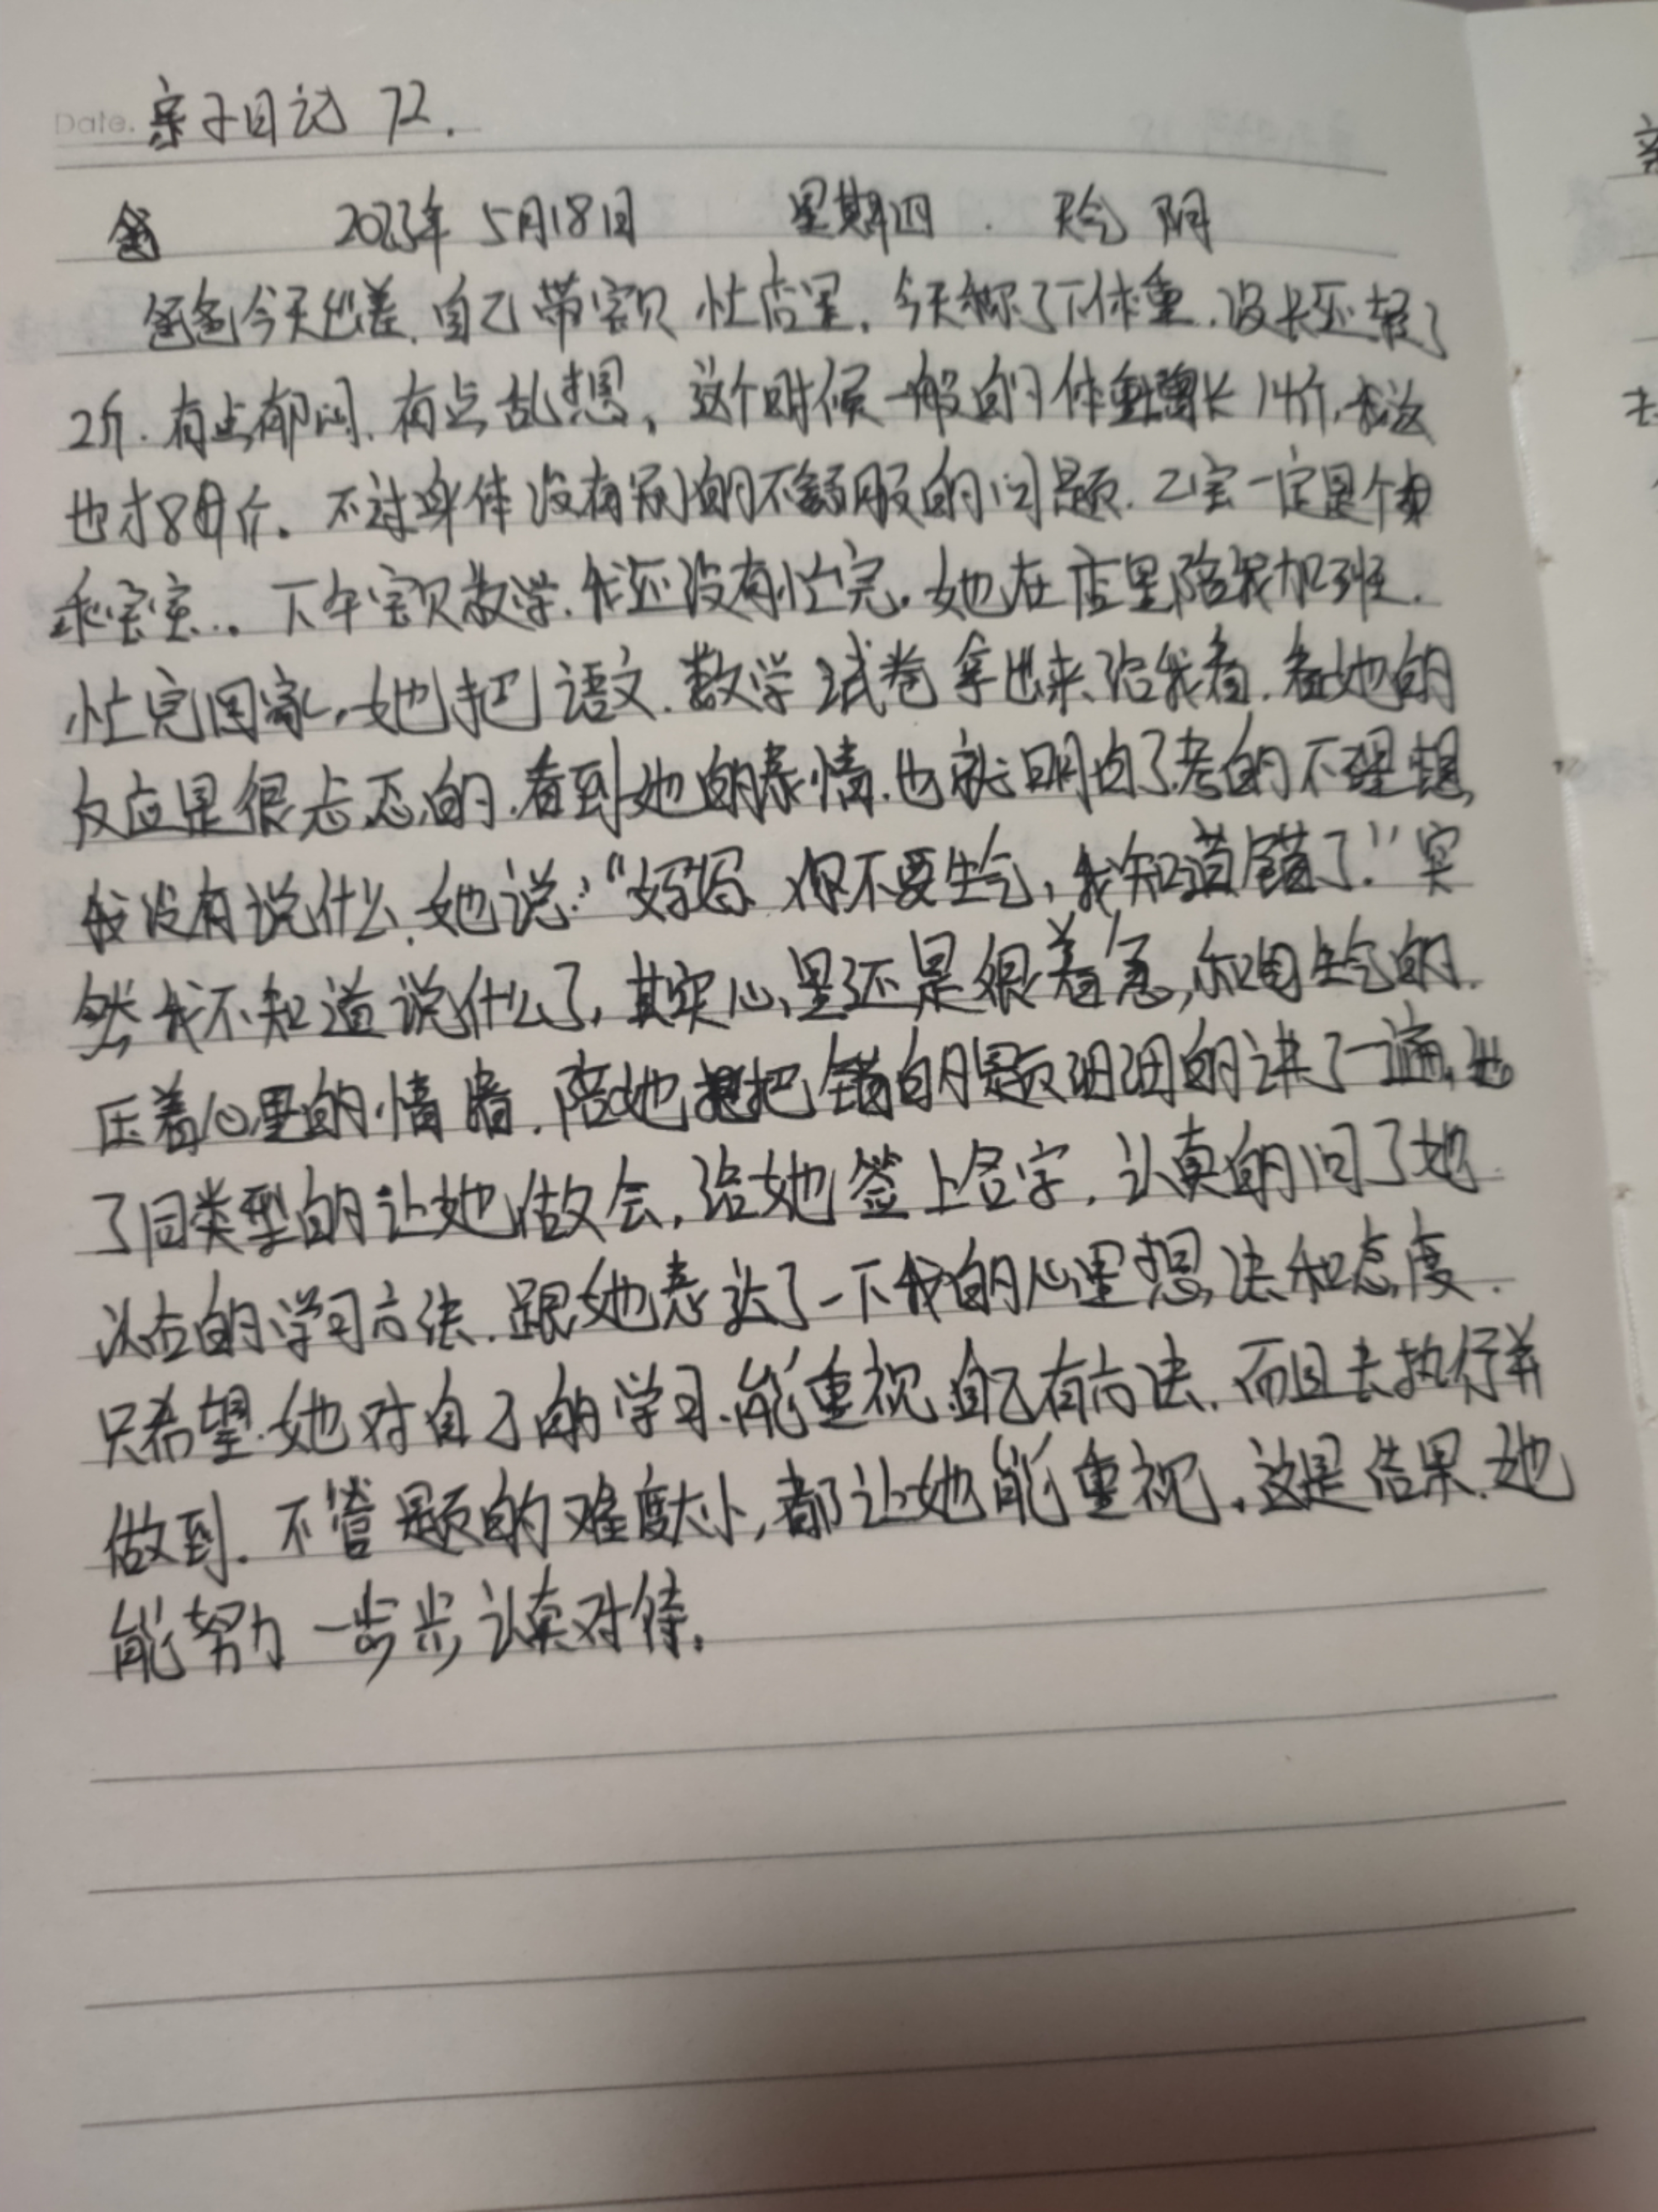 Date. 亲子日记 72.
2023年 5月18日 星期四. 天气 阴
爸爸今天出差.自己带宝贝 忙店里.今天称了下体重.没长还轻了
2斤.有点郁闷.有点乱想,这个时候一般的体重增长14斤,我这
也才8斤.不过身体没有别的不舒服的问题.二宝一定是个
乖宝宝...下午宝贝放学.我还没有忙完.她在店里陪我加班.
忙完回家,她把语文.数学试卷拿出来给我看.看她的
反应是很忐忑的.看到她的表情.也就明白了考的不理想
我没有说什么.她说:“妈妈.你不要生气,我知道错了.”突
然我不知道说什么了,其实心里还是很着急,和生气的.
压着心里的情绪.陪她把错的题细细的讲了一遍,
了同类型的让她做会,给她签上名字.认真的问了她
以后的学习方法.跟她表达了一下我的心里想法和态度.
只希望她对自己的学习.能重视.自己有方法.而且去执行并
做到.不管题的难度大小,都让她能重视.这是结果.她
能努力一步步认真对待.